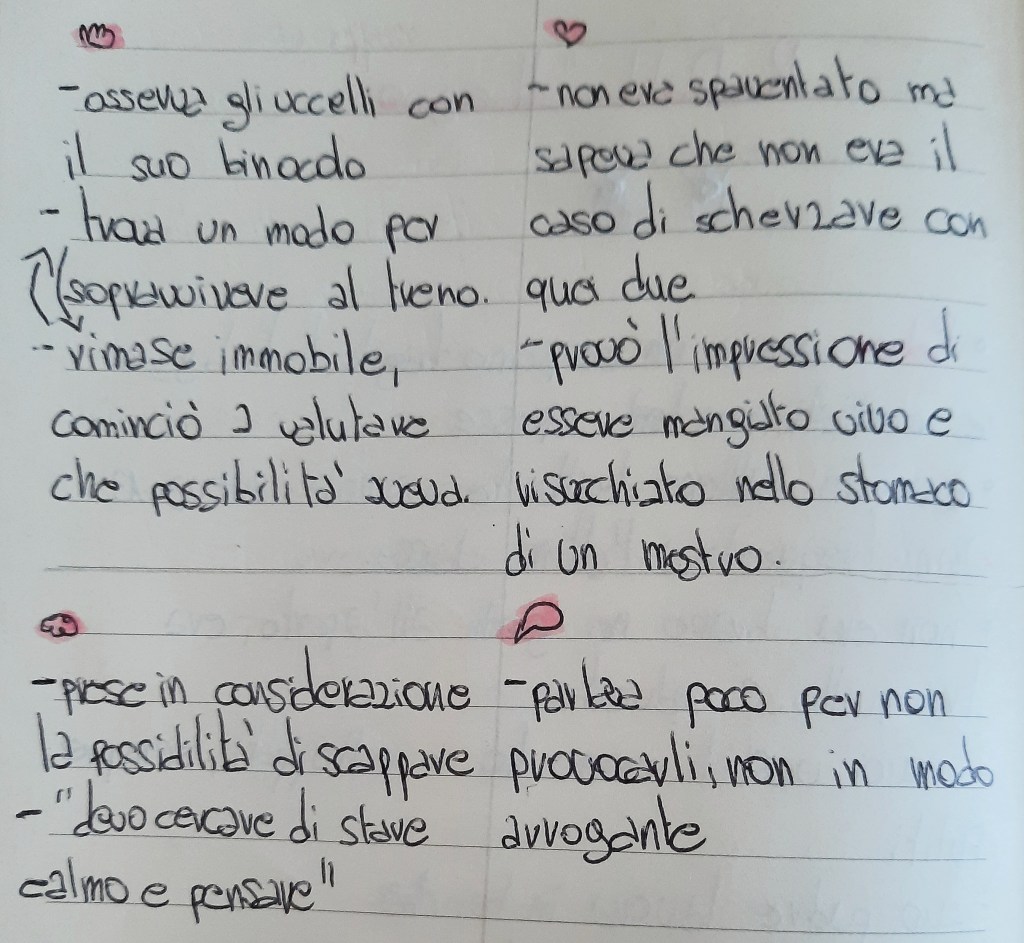 - osserva gli uccelli con
il suo binocolo
- trova un modo per
sopravvivere al treno.
- rimase immobile,
cominciò a valutare
che possibilità aveva.
- non era spaventato ma
sapeva che non era il
caso di scherzare con
quei due
- provò l'impressione di
essere mangiato vivo e
risucchiato nello stomaco
di un mostro.
- prese in considerazione
la possidilità di scappare
- "devo cercare di stare
calmo e pensare"
- parlava poco per non
provocarli, non in modo
arrogante